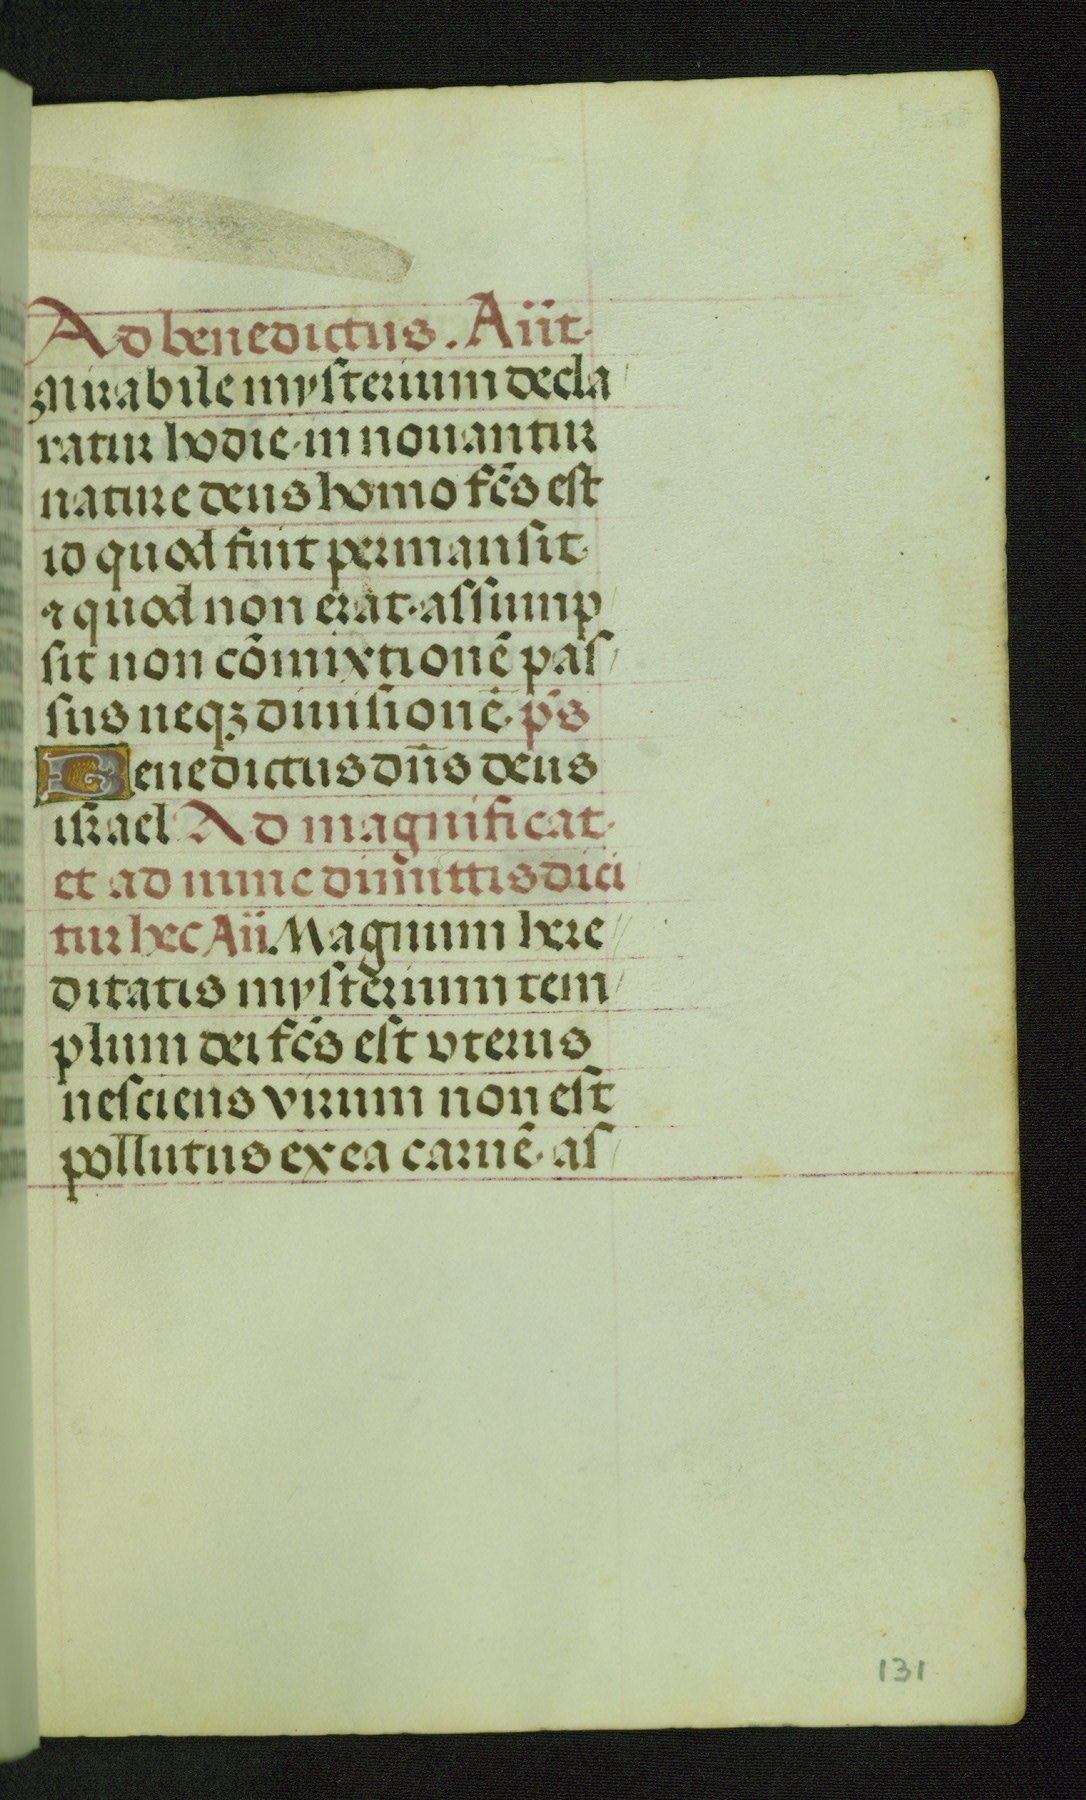 Ad benedictus. Añt.
Mirabile mysterium decla
ratur hodie. innouantur
nature deus homo fc̄s est
id quod fuit permansit.
⁊ quod non erat. assump
sit non cōmixtionē pas
sus neqꝫ diuisionē. ps̄
Benedictus dn̄s deus
israel Ad magnificat.
et ad nunc dimittis dici
tur hec Añ. Magnum here
ditatis mysterium tem
plum dei fc̄s est vterus
nesciens virum non est
pollutus ex ea carnē. as
131